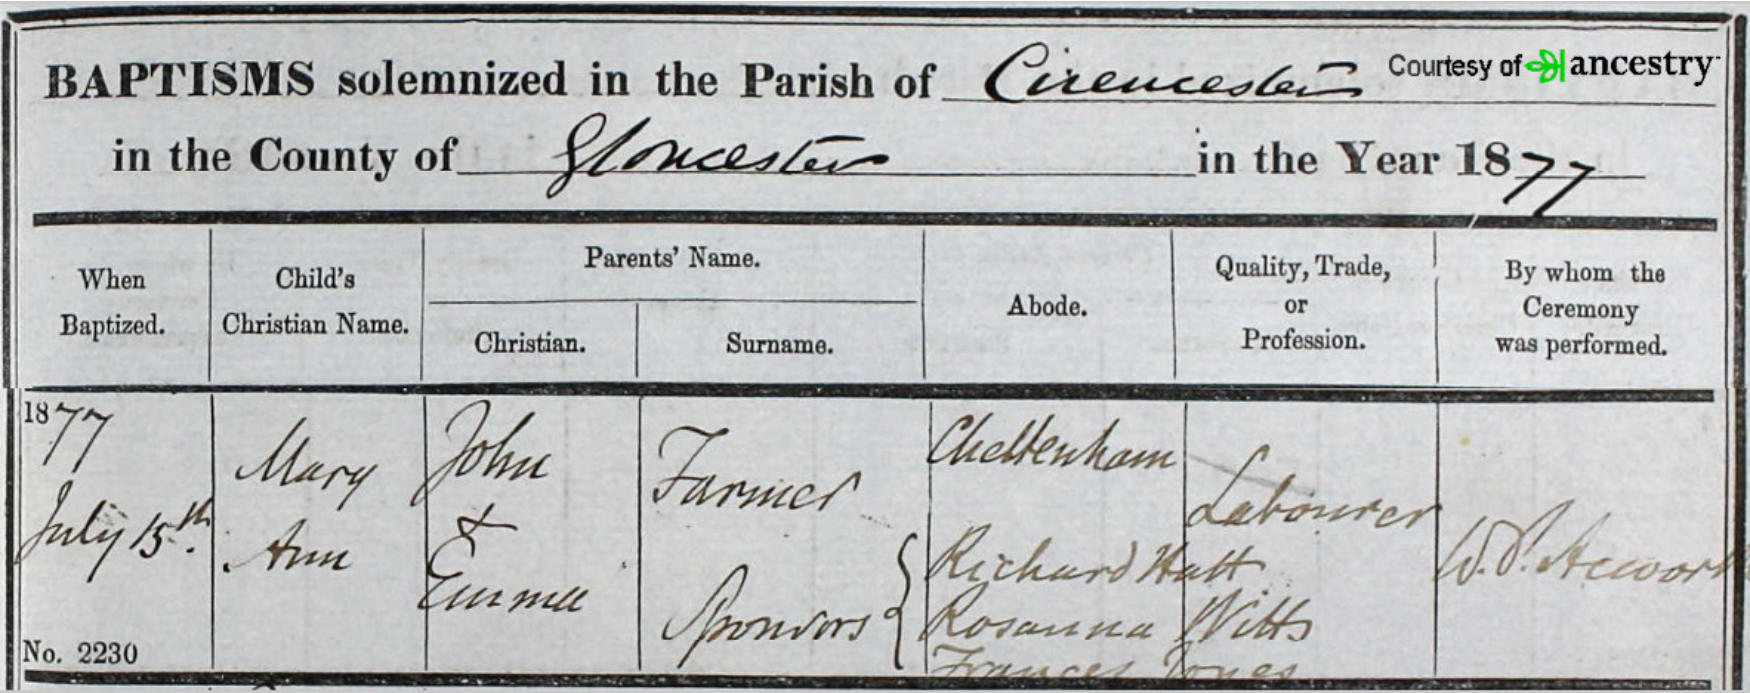 BAPTISMS solemnized in the Parish of Cirencester
Courtesy of ancestry
in the County of Gloucester in the Year 1877
When Baptized.
Child's Christian Name.
Parents' Name.
Christian.
Surname.
Abode.
Quality, Trade, or Profession.
By whom the Ceremony was performed.
1877
July 15th.
No. 2230
Mary
Ann
John
&
Emma
Farmer
Sponsors
Cheltenham
Labourer
Richard Hatt
Rosanna Witts
Frances Jones
W. P. Acworth